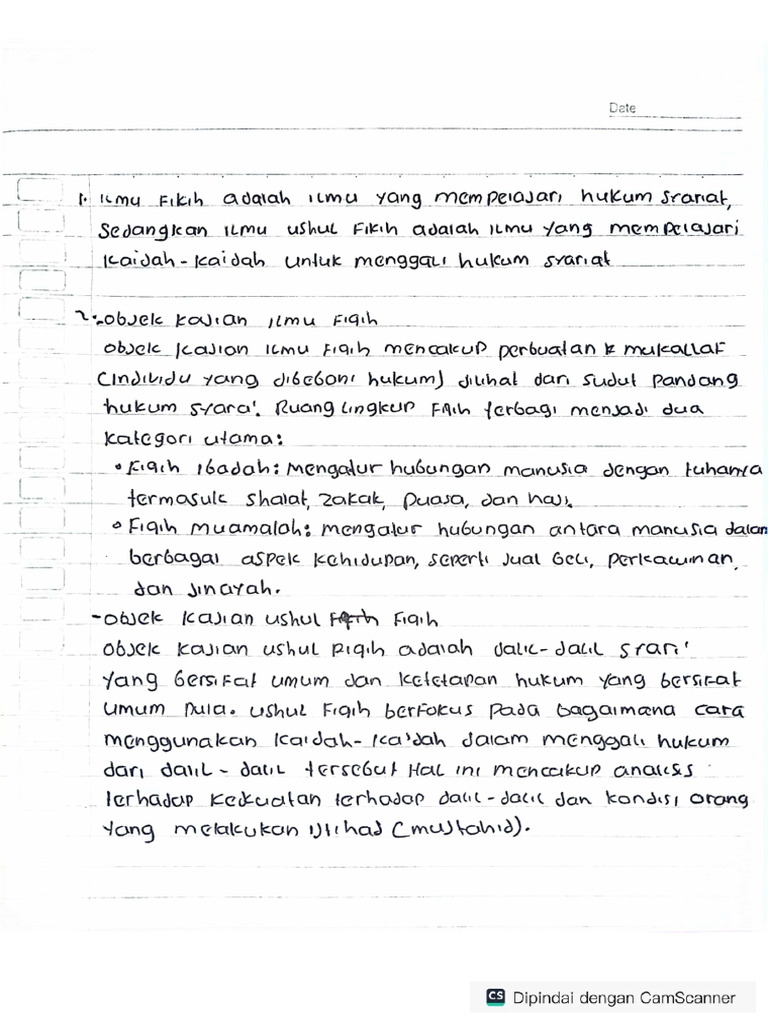 Date
1. Ilmu Fikih adalah ilmu yang mempelajari hukum syariat,
Sedangkan ilmu ushul Fikih adalah ilmu yang mempelajari
kaidah-kaidah untuk menggali hukum syariat
2. -Objek kajian ilmu Fiqih
Objek kajian ilmu Fiqih mencakup perbuatan mukallaf
(individu yang dibebani hukum) dilihat dari sudut pandang
hukum syara'. Ruang lingkup Fiqih terbagi menjadi dua
kategori utama:
• Fiqih ibadah: Mengatur hubungan manusia dengan tuhanya
termasuk shalat, zakak, puasa, dan haji.
• Fiqih Muamalah: mengatur hubungan antara manusia dalam
berbagai aspek kehidupan, seperti jual beli, perkawinan,
dan jinayah.
-Objek kajian ushul Fiqih
Objek kajian ushul Fiqih adalah dalil-dalil syari'
yang bersifat umum dan ketetapan hukum yang bersifat
umum pula. Ushul Fiqih berfokus pada bagaimana cara
menggunakan kaidah-kaidah dalam menggali hukum
dari dalil-dalil tersebut Hal ini mencakup analisis
terhadap kekuatan terhadap dalil-dalil dan kondisi orang
yang melakukan ijtihad (mujtahid).
CS Dipindai dengan CamScanner